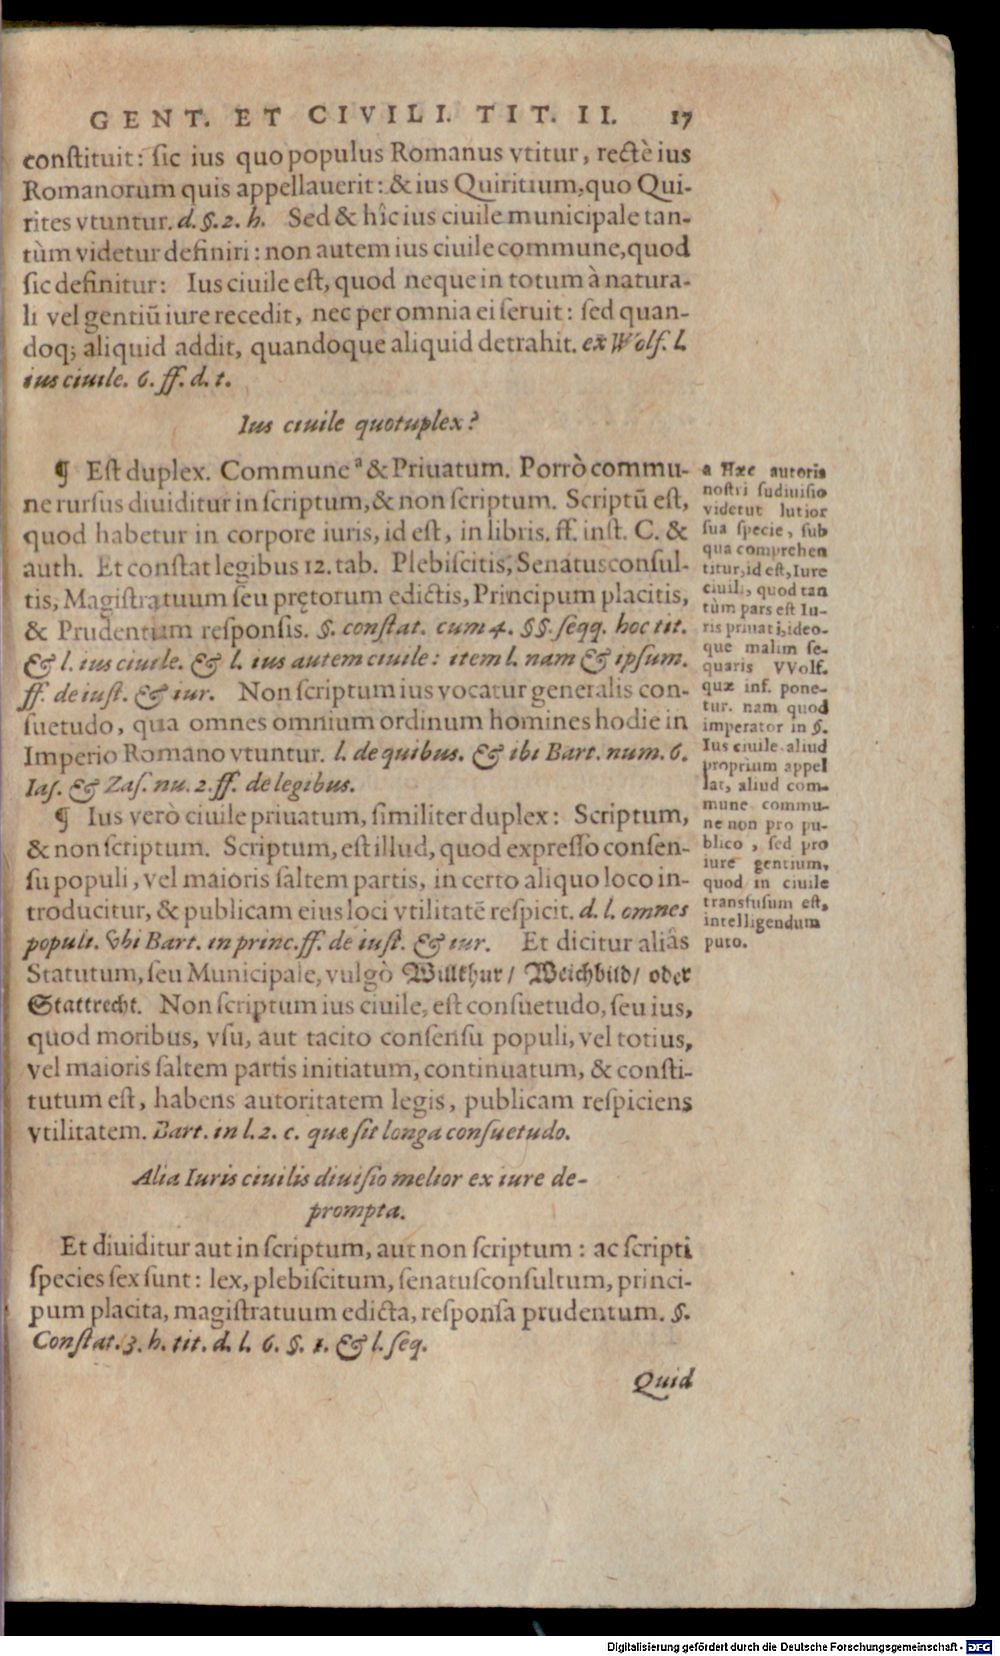 GENT. ET CIVILI. TIT. II. 17
conſtituit: ſic ius quo populus Romanus vtitur, rectè ius
Romanorum quis appellauerit: & ius Quiritium, quo Qui-
rites vtuntur. d. §. 2. h. Sed & hîc ius ciuile municipale tan-
tùm videtur definiri: non autem ius ciuile commune, quod
ſic definitur: Ius ciuile eſt, quod neque in totum à natura-
li vel gentiũ iure recedit, nec per omnia ei ſeruit: ſed quan-
doq; aliquid addit, quandoque aliquid detrahit. ex Wolf. l.
ius ciuile. 6. ff. d. t.
Ius ciuile quotuplex?
¶ Eſt duplex. Commune ª & Priuatum. Porrò commu-
ne rurſus diuiditur in ſcriptum, & non ſcriptum. Scriptũ eſt,
quod habetur in corpore iuris, id eſt, in libris. ff. inſt. C. &
auth. Et conſtat legibus 12. tab. Plebiſcitis, Senatusconſul-
tis, Magiſtratuum ſeu prętorum edictis, Principum placitis,
& Prudentium reſponſis. §. conſtat. cum 4. §§. ſeqq. hoc tit.
& l. ius ciuile. & l. ius autem ciuile: item l. nam & ipſum.
ff. de iuſt. & iur. Non ſcriptum ius vocatur generalis con-
ſuetudo, qua omnes omnium ordinum homines hodie in
Imperio Romano vtuntur. l. de quibus. & ibi Bart. num. 6.
Iaſ. & Zaſ. nu. 2. ff. de legibus.
¶ Ius verò ciuile priuatum, ſimiliter duplex: Scriptum,
& non ſcriptum. Scriptum, eſt illud, quod expreſſo conſen-
ſu populi, vel maioris ſaltem partis, in certo aliquo loco in-
troducitur, & publicam eius loci vtilitatẽ reſpicit. d. l. omnes
populi. vbi Bart. in princ. ff. de iuſt. & iur. Et dicitur aliâs
Statutum, ſeu Municipale, vulgò Willkhur/ Weichbild/ oder
Stattrecht. Non ſcriptum ius ciuile, eſt conſuetudo, ſeu ius,
quod moribus, vſu, aut tacito conſenſu populi, vel totius,
vel maioris ſaltem partis initiatum, continuatum, & conſti-
tutum eſt, habens autoritatem legis, publicam reſpiciens
vtilitatem. Bart. in l. 2. c. quæ ſit longa conſuetudo.
Alia Iuris ciuilis diuiſio melior ex iure de-
prompta.
Et diuiditur aut in ſcriptum, aut non ſcriptum: ac ſcripti
ſpecies ſex ſunt: lex, plebiſcitum, ſenatusconſultum, princi-
pum placita, magiſtratuum edicta, reſponſa prudentum. §.
Conſtat. 3. h. tit. d. l. 6. §. 1. & l. ſeq.
Quid
a Hæc autoris
noſtri ſudiuiſio
videtur lutior
ſua ſpecie, ſub
qua comprehen
titur, id eſt, Iure
ciuili, quod tan
tùm pars eſt Iu-
ris priuati, ideo-
que malim ſe-
quaris VVolf.
quæ inf. pone-
tur. nam quod
imperator in §.
Ius ciuile aliud
proprium appel
lat, aliud com-
mune commu-
ne non pro pu-
blico, ſed pro
iure gentium,
quod in ciuile
transfuſum eſt,
intelligendum
puto.
Digitalisierung gefördert durch die Deutsche Forschungsgemeinschaft - DFG